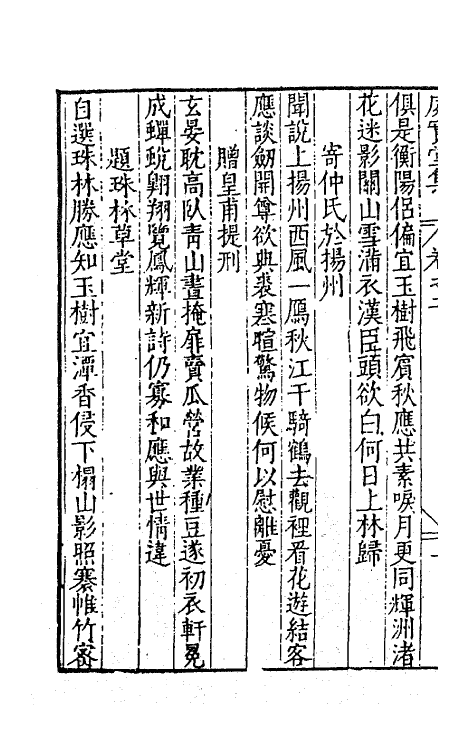 處實堂集　卷之二
俱是衡陽侶偏宜玉樹飛賓秋應共素唳月更同輝洲渚
花迷影關山雪滿衣漢臣頭欲白何日上林歸
寄仲氏於揚州
聞說上揚州西風一鴈秋江干騎鶴去觀裡看花遊結客
應談劒開尊欲典裘寒暄驚物候何以慰離憂
贈皇甫提刑
玄晏耽高臥青山晝掩扉賣瓜營故業種豆遂初衣軒冕
成蟬蛻翱翔覽鳳輝新詩仍寡和應與世情違
題珠林草堂
自選珠林勝應知玉樹宜潭香侵下榻山影照褰帷竹密